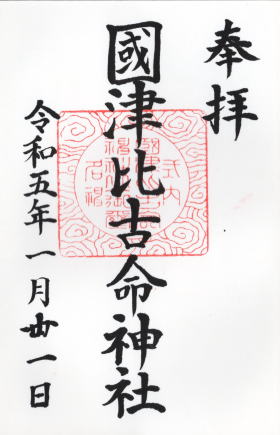 奉拝
國津比古命神社
令和五年一月廿一日